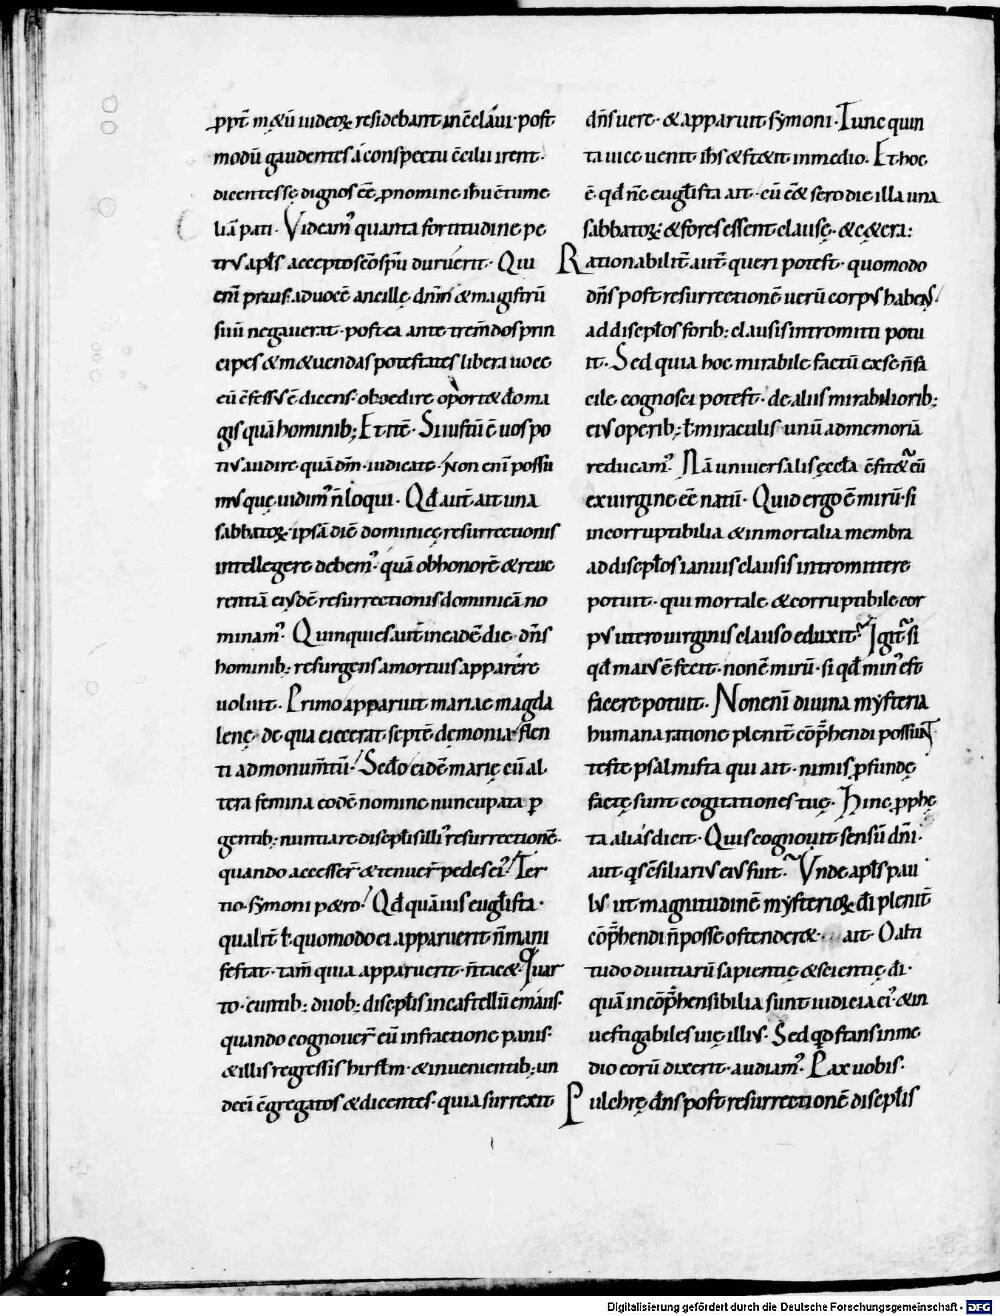 ꝓpt̄ m&ū iudeoꝝ residebant inc̄claui· post
modū gaudentes a c̄onspectu c̄cilii irent·
dicentes se dignos ēē pro nomine ihū c̄tume
liā pati· Videam᾽ quanta fortitudine pe
trus apl̄s accepto sc̄o spū duruerit· Qui
enī prius ad uocē ancillę dn̄m & magistrū
suū negauerat· postea ante trem̄dos prin
cipes & m&uendas potestates libera uoce
eū c̄fessus ē dicens· oboedire oport& d̄o ma
gis quā hominib;· Et itē· Si iustū ē uos po
tius audire quā dm̄· iudicate· Non enī possu
mus quę uidim᾽ n̄ loqui· Qd̄ aut̄ ait una
sabbatoꝝ· ipsā diē dominicę resurrectionis
intellegere debem᾽· quā ob honorē & reue
rentiā eiusdē resurrectionis dominicā no
minam᾽· Quinquies aut̄ in eadē die· dn̄s
hominib; resurgens a mortuis apparere
uoluit· Primo apparuit mariae magda
lenę· de qua eiecerat septē demonia· flen
ti ad monum̄tū· Sed̄o eidē marię cū al
tera femina eodē nomine nuncupata ꝑ
gentib; nuntiare discipl̄is illi᾽ resurrectionē·
quando accesser̄ & tenuer̄ pedes ei᾽· Ter
tio· symoni p&ro· Qd̄ quāuis eugl̄ista·
qualit̄ ł quomodo ei apparuerit n̄ mani
festat· tam̄ quia apparuerit· n̄ tac&· Quar
to· euntib; duob; discipl̄is in castellū emaus·
quando cognouer̄ eū in fractione panis·
& illis regressis hirslm̄· & inuenientib; un
deci c̄gregatos & dicentes· quia surrexit
dn̄s uere· & apparuit symoni· Tunc quin
ta uice uenit ih̄s & st&it in medio· Et hoc
ē· qd̄ nc̄ eugl̄ista ait· cū ēē& sero die illa una
sabbatoꝝ· & fores essent clausę· & c&era:
Rationabilit̄ aut̄ queri potest· quomodo
dn̄s post resurrectionē uerū corpus habens·
ad discipl̄os forib; clausis intromitti potu
it· Sed quia hoc mirabile factū ex se n̄ fa
cile cognosci potest· de aliis mirabiliorib;
eius operib; ł miraculis· unū ad memoriā
reducam᾽· Nā uniuersalis ęccła c̄fit& eū
ex uirgine ēē natū· Quid ergo ē mirū· si
incorruptibilia & inmortalia membra
ad discipl̄os ianuis clausis intromittere
potuit· qui mortale & corruptibile cor
pus utero uirginis clauso eduxit· Igit᾽ si
qd̄ maius ē fecit· non ē mirū· si qd̄ min᾽ est
facere potuit· Non enī diuina mysteria
humana ratione plenit̄ c̄op̄hendi possunt
teste psalmista qui ait· nimis ꝓfundę
factę sunt cogitationes tuę· Hinc ꝓphe
ta alias dicit· Quis cognouit sensū dn̄i·
aut qs c̄siliarius eius fuit· Vnde apl̄s pau
lus ut magnitudinē mysterioꝝ d̄i plenit̄
c̄op̄hendi n̄ posse ostender&· ait· O alti
tudo diuitiarū sapientię & scientię d̄i·
quā incōp̄hensibilia sunt iudicia ei᾽· & in
uestigabiles uię illius· Sed qd̄ stans in me
dio eorū dixerit· audiam᾽· Pax uobis·
Pulchrę dn̄s post resurrectionē discipl̄is
Digitalisierung gefördert durch die Deutsche Forschungsgemeinschaft - DFG